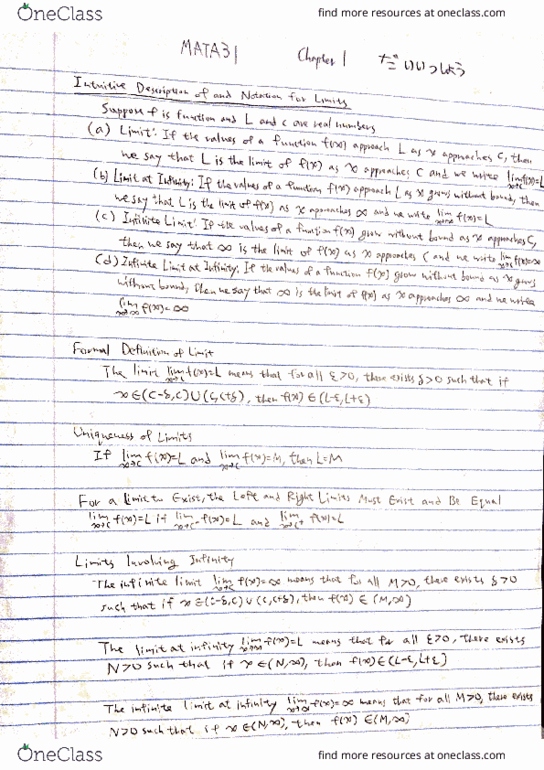 OneClass
find more resources at oneclass.com
MATA31 Chapter 1 だいいっしょう
Intuitive Description of and Notation for Limits
Suppose f is function and L and c are real numbers
(a) Limit: If the values of a function f(x) approach L as x approaches c, then
we say that L is the limit of f(x) as x approaches c and we write lim x→c f(x)=L
(b) Limit at Infinity: If the values of a function f(x) approach L as x grows without bound, then
we say that L is the limit of f(x) as x approaches ∞ and we write lim x→∞ f(x)=L
(c) Infinite Limit: If the values of a function f(x) grow without bound as x approaches c,
then we say that ∞ is the limit of f(x) as x approaches c and we write lim x→c f(x)=∞
(d) Infinite Limit at Infinity: If the values of a function f(x) grow without bound as x grows
without bound, then we say that ∞ is the limit of f(x) as x approaches ∞ and we write
lim x→∞ f(x)=∞
Formal Definition of Limit
The limit lim x→c f(x)=L means that for all ε>0, there exists δ>0 such that if
x∈(c-δ,c)∪(c,c+δ), then f(x)∈(L-ε,L+ε)
Uniqueness of Limits
If lim x→c f(x)=L and lim x→c f(x)=M, then L=M
For a limit to Exist, the Left and Right Limits Must Exist and Be Equal
lim x→c f(x)=L if lim x→c⁻ f(x)=L and lim x→c⁺ f(x)=L
Limits Involving Infinity
The infinite limit lim x→c f(x)=∞ means that for all M>0, there exists δ>0
such that if x∈(c-δ,c)∪(c,c+δ), then f(x)∈(M,∞)
The limit at infinity lim x→∞ f(x)=L means that for all ε>0, there exists
N>0 such that if x∈(N,∞), then f(x)∈(L-ε,L+ε)
The infinite limit at infinity lim x→∞ f(x)=∞ means that for all M>0, there exists
N>0 such that if x∈(N,∞), then f(x)∈(M,∞)
OneClass
find more resources at oneclass.com